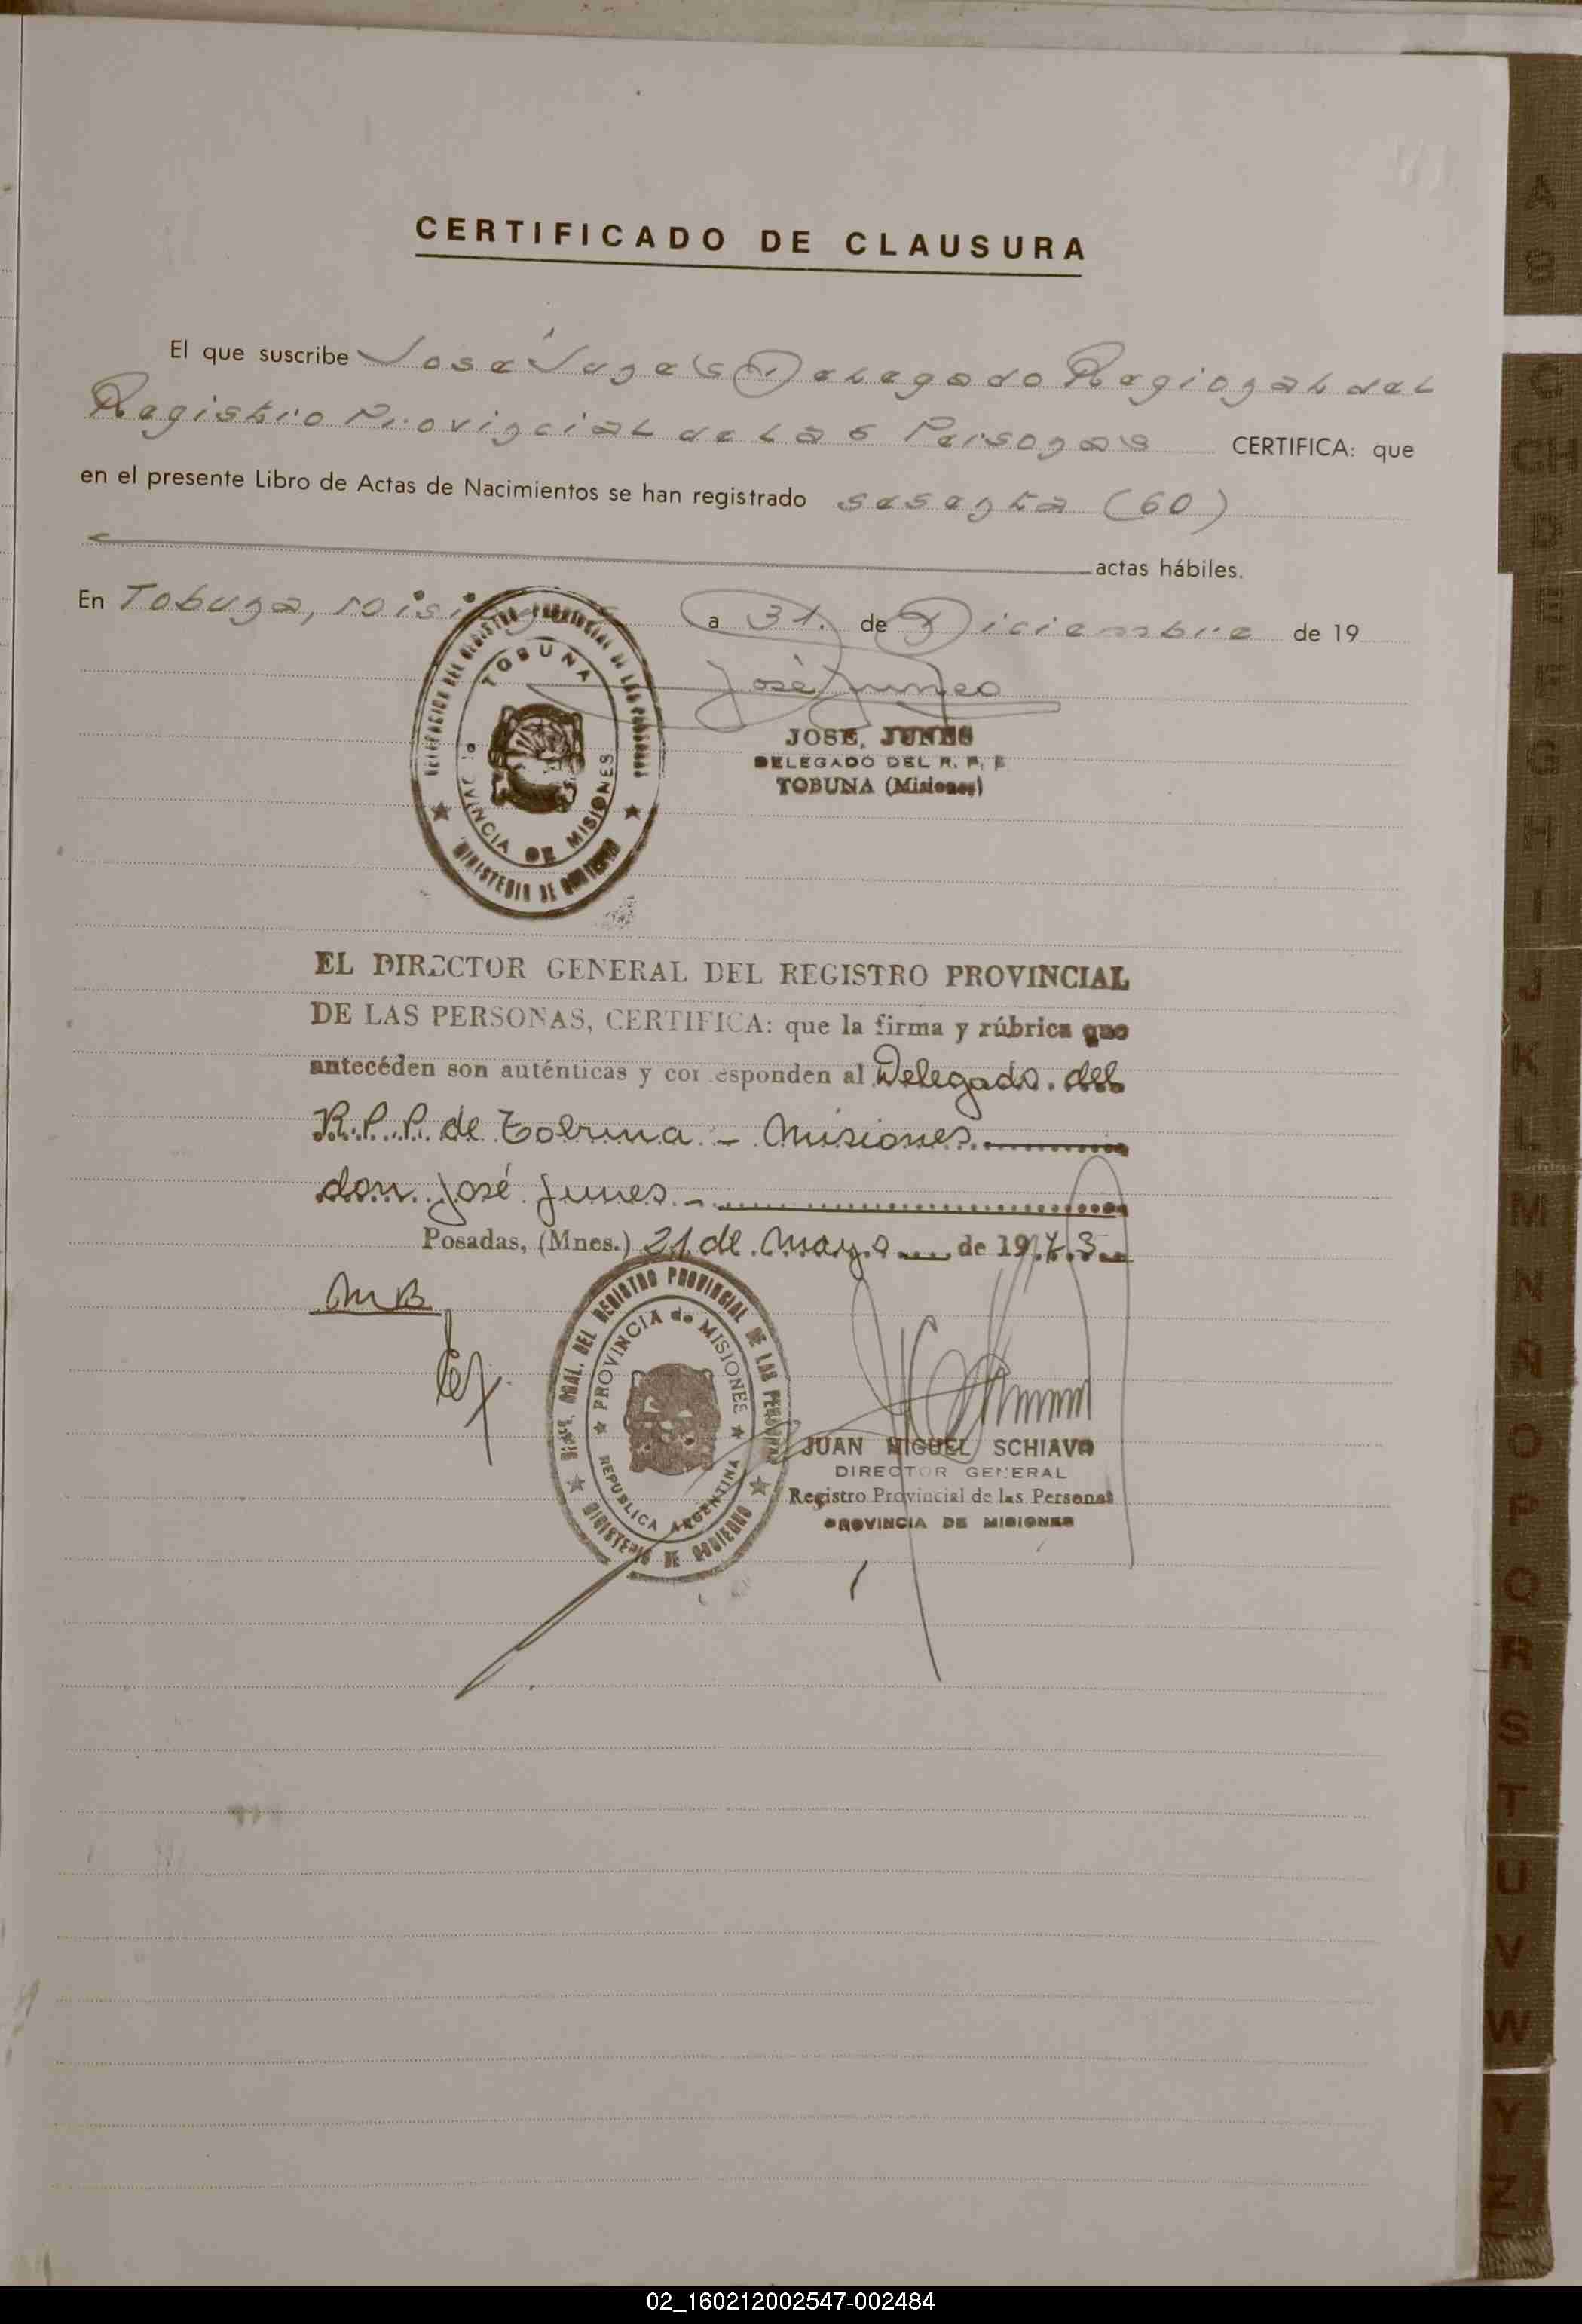 CERTIFICADO DE CLAUSURA
El que suscribe José Junes Delegado Regional del
Registro Provincial de las Personas CERTIFICA: que
en el presente Libro de Actas de Nacimientos se han registrado sesenta (60)
actas hábiles.
En Tobuna, a 31. de Diciembre de 19
TOBUNA
PROVINCIA DE MISIONES
MINISTERIO DE GOBIERNO
JOSE, JUNES
DELEGADO DEL R. P. P
TOBUNA (Misiones)
EL DIRECTOR GENERAL DEL REGISTRO PROVINCIAL
DE LAS PERSONAS, CERTIFICA: que la firma y rúbrica que
antecéden son auténticas y corresponden al Delegado. del
R. P. P. de Tobuna - Misiones
don José Junes -
Posadas, (Mnes.) 21 de Mayo de 1973
MB
DIREC. GRAL. DEL REGISTRO PROVINCIAL DE LAS PERSONAS
PROVINCIA de MISIONES
REPUBLICA ARGENTINA
MINISTERIO DE GOBIERNO
JUAN MIGUEL SCHIAVO
DIRECTOR GENERAL
Registro Provincial de las Personas
PROVINCIA DE MISIONES
A
B
C
CH
D
E
F
G
H
I
J
K
L
M
N
Ñ
O
P
Q
R
S
T
U
V
W
Y
Z
02_160212002547-002484